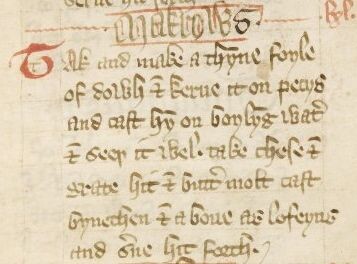 Makrows.
Tak and make a thyne foyle
of dowh & kerue it on pecys
and cast hÿ on boylyg wat͛
& seeþ it wel. take chese &
grate hit & butt͛ molt cast
bynethen & a boue as loseyns
and s͛ue hit forth.